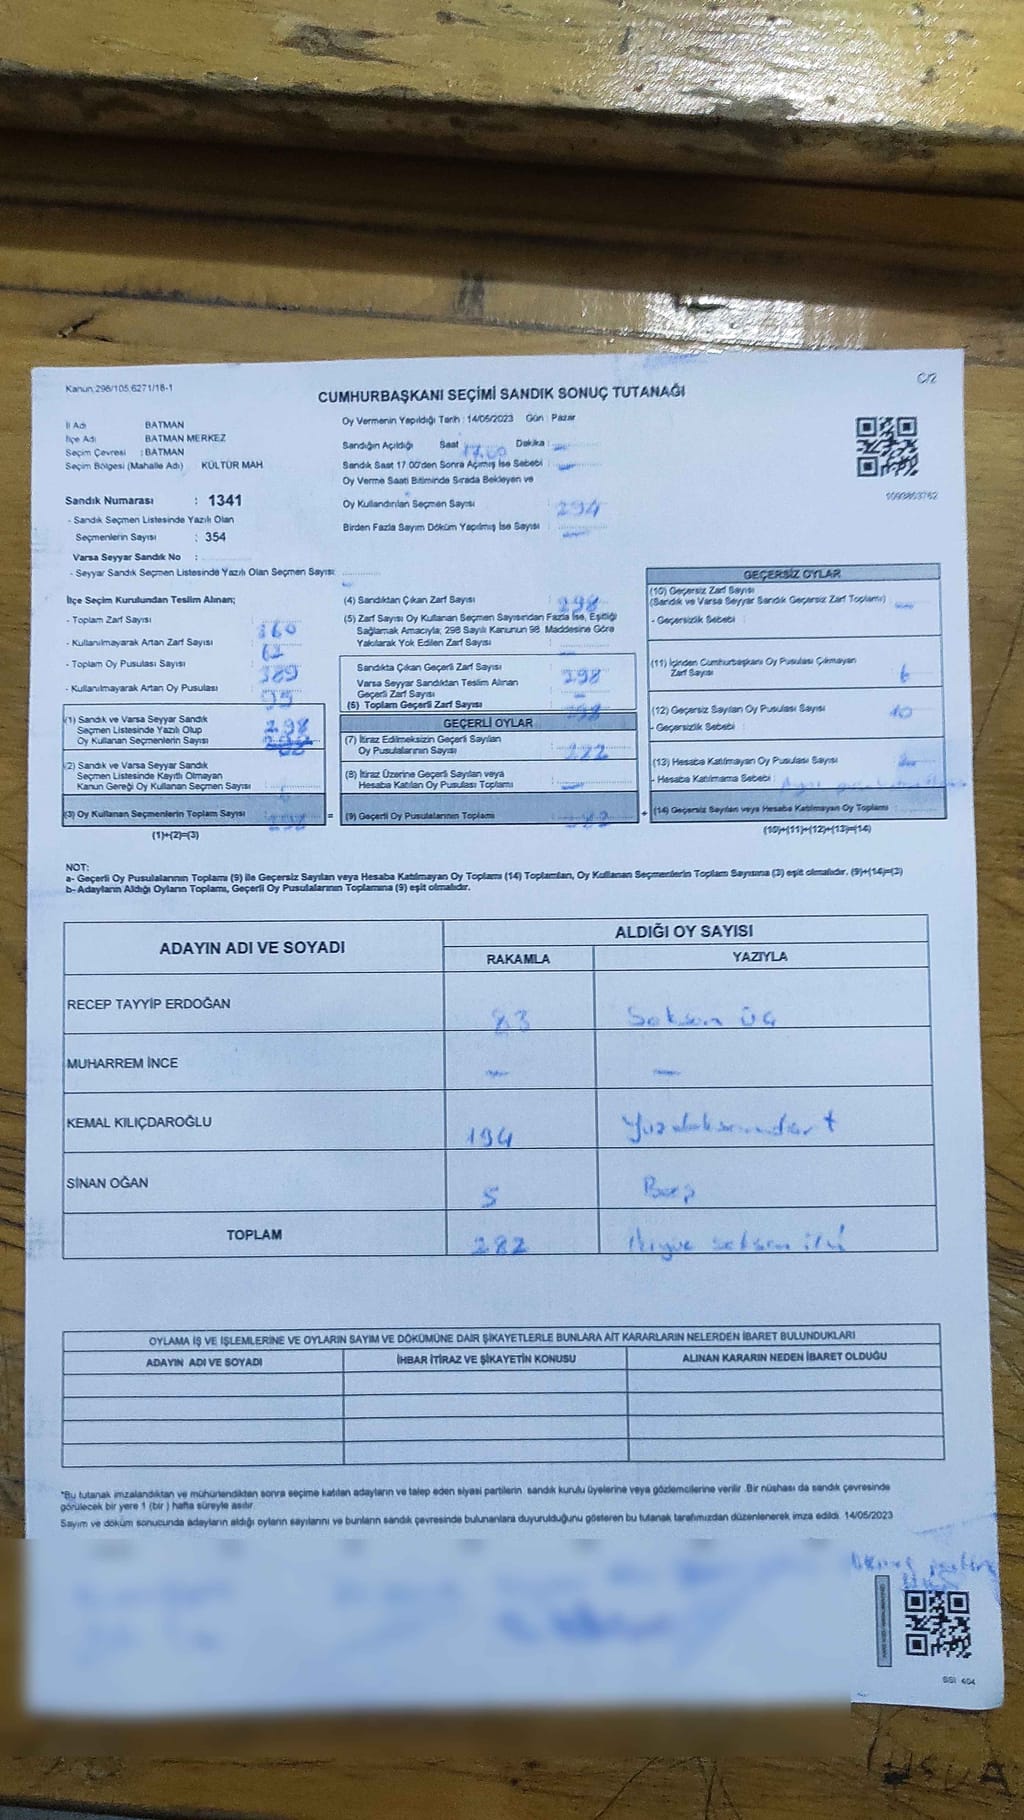 Kanun: 298/105.6271/18-1
C/2
CUMHURBAŞKANI SEÇİMİ SANDIK SONUÇ TUTANAĞI
İl Adı BATMAN
İlçe Adı BATMAN MERKEZ
Seçim Çevresi : BATMAN
Seçim Bölgesi (Mahalle Adı) KÜLTÜR MAH
Sandık Numarası : 1341
- Sandık Seçmen Listesinde Yazılı Olan
Seçmenlerin Sayısı : 354
Varsa Seyyar Sandık No :
- Seyyar Sandık Seçmen Listesinde Yazılı Olan Seçmen Sayısı:
Oy Vermenin Yapıldığı Tarih : 14/05/2023 Gün : Pazar
Sandığın Açıldığı Saat 17.00 Dakika :
Sandık Saat 17.00'den Sonra Açılmış İse Sebebi
Oy Verme Saati Bitiminde Sırada Bekleyen ve
Oy Kullandırılan Seçmen Sayısı : 294
Birden Fazla Sayım Döküm Yapılmış İse Sayısı
1093803762
İlçe Seçim Kurulundan Teslim Alınan;
- Toplam Zarf Sayısı : 360
- Kullanılmayarak Artan Zarf Sayısı : 62
- Toplam Oy Pusulası Sayısı : 389
- Kullanılmayarak Artan Oy Pusulası
(1) Sandık ve Varsa Seyyar Sandık
Seçmen Listesinde Yazılı Olup
Oy Kullanan Seçmenlerin Sayısı 298
(2) Sandık ve Varsa Seyyar Sandık
Seçmen Listesinde Kayıtlı Olmayan
Kanun Gereği Oy Kullanan Seçmen Sayısı
(3) Oy Kullanan Seçmenlerin Toplam Sayısı 298
(1)+(2)=(3)
=
(4) Sandıktan Çıkan Zarf Sayısı : 298
(5) Zarf Sayısı Oy Kullanan Seçmen Sayısından Fazla İse, Eşitliği
Sağlamak Amacıyla; 298 Sayılı Kanunun 98. Maddesine Göre
Yakılarak Yok Edilen Zarf Sayısı
Sandıkta Çıkan Geçerli Zarf Sayısı : 298
Varsa Seyyar Sandıktan Teslim Alınan
Geçerli Zarf Sayısı
(6) Toplam Geçerli Zarf Sayısı 298
GEÇERLİ OYLAR
(7) İtiraz Edilmeksizin Geçerli Sayılan
Oy Pusulalarının Sayısı 282
(8) İtiraz Üzerine Geçerli Sayılan veya
Hesaba Katılan Oy Pusulası Toplamı
(9) Geçerli Oy Pusulalarının Toplamı 282
+
GEÇERSİZ OYLAR
(10) Geçersiz Zarf Sayısı
(Sandık ve Varsa Seyyar Sandık Geçersiz Zarf Toplamı)
- Geçersizlik Sebebi
(11) İçinden Cumhurbaşkanı Oy Pusulası Çıkmayan
Zarf Sayısı 6
(12) Geçersiz Sayılan Oy Pusulası Sayısı 10
- Geçersizlik Sebebi
(13) Hesaba Katılmayan Oy Pusulası Sayısı
- Hesaba Katılmama Sebebi
(14) Geçersiz Sayılan veya Hesaba Katılmayan Oy Toplamı
(10)+(11)+(12)+(13)=(14)
NOT:
a- Geçerli Oy Pusulalarının Toplamı (9) ile Geçersiz Sayılan veya Hesaba Katılmayan Oy Toplamı (14) Toplamları, Oy Kullanan Seçmenlerin Toplam Sayısına (3) eşit olmalıdır. (9)+(14)=(3)
b- Adayların Aldığı Oyların Toplamı, Geçerli Oy Pusulalarının Toplamına (9) eşit olmalıdır.
ADAYIN ADI VE SOYADI
ALDIĞI OY SAYISI
RAKAMLA YAZIYLA
RECEP TAYYİP ERDOĞAN 83 Seksen üç
MUHARREM İNCE — —
KEMAL KILIÇDAROĞLU 194
SİNAN OĞAN 5 Beş
TOPLAM 282 seksen iki
OYLAMA İŞ VE İŞLEMLERİNE VE OYLARIN SAYIM VE DÖKÜMÜNE DAİR ŞİKAYETLERLE BUNLARA AİT KARARLARIN NELERDEN İBARET BULUNDUKLARI
ADAYIN ADI VE SOYADI İHBAR İTİRAZ VE ŞİKAYETİN KONUSU ALINAN KARARIN NEDEN İBARET OLDUĞU
*Bu tutanak imzalandıktan ve mühürlendikten sonra seçime katılan adayların ve talep eden siyasi partilerin sandık kurulu üyelerine veya gözlemcilerine verilir. Bir nüshası da sandık çevresinde
görülecek bir yere 1 (bir) hafta süreyle asılır.
Sayım ve döküm sonucunda adayların aldığı oyların sayılarını ve bunların sandık çevresinde bulunanlara duyurulduğunu gösteren bu tutanak tarafımızdan düzenlenerek imza edildi. 14/05/2023